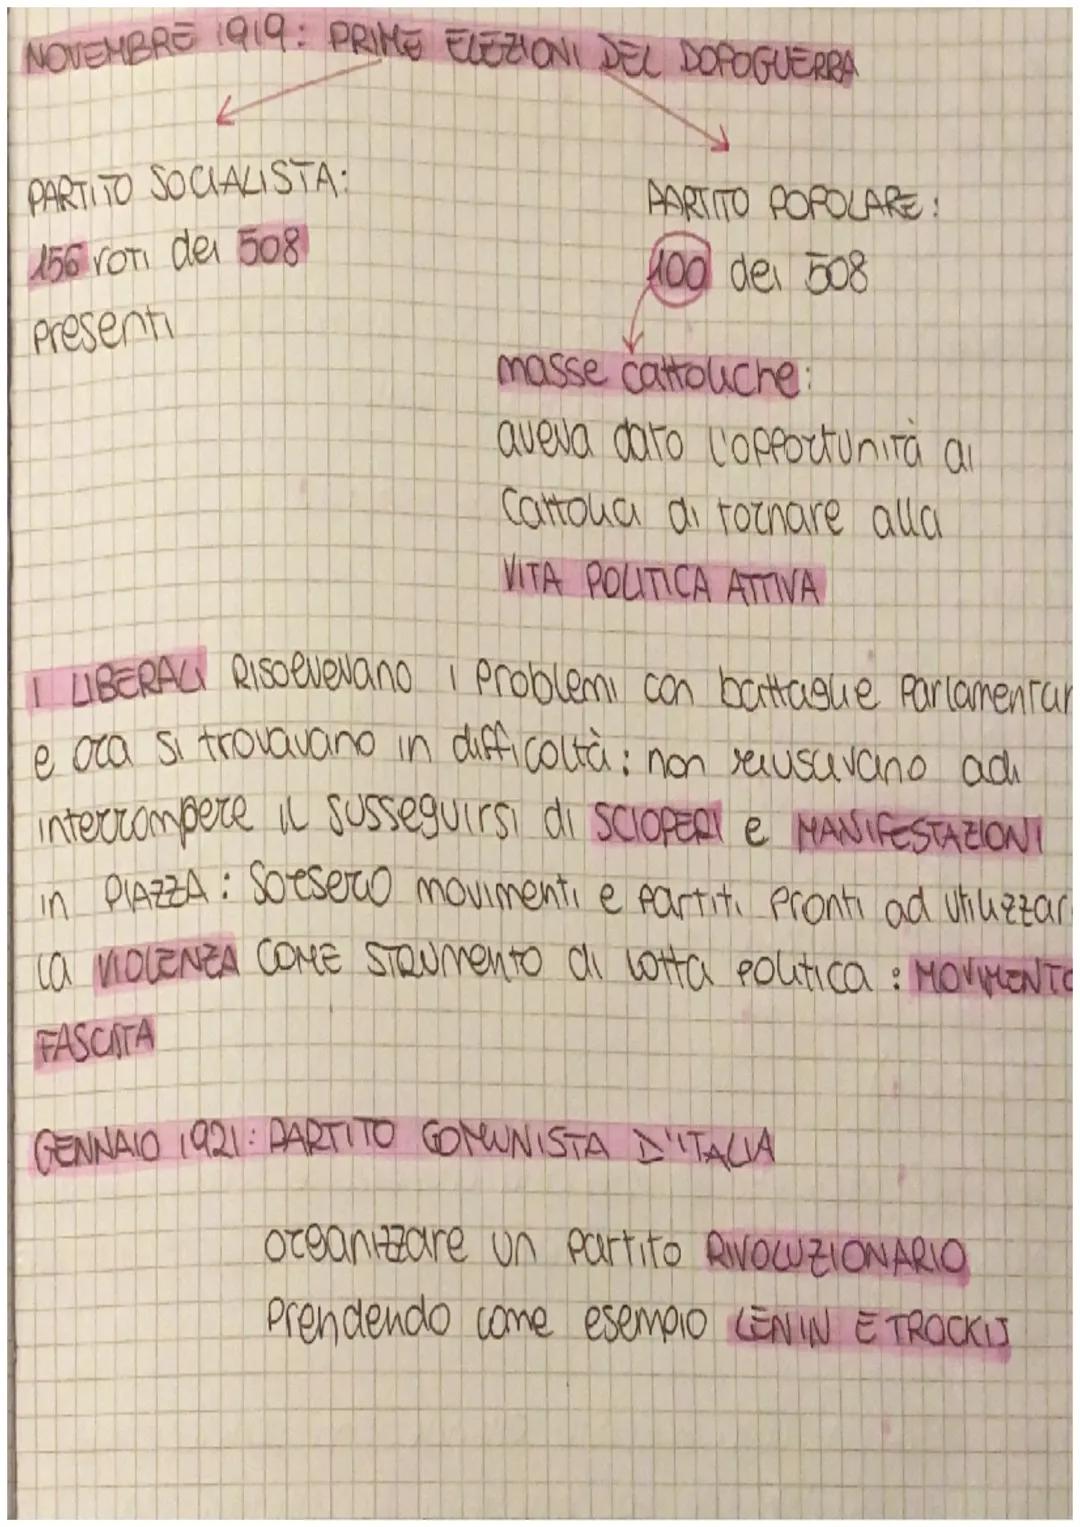 NOVEMBRE 1919: PRIME ELEZIONI DEL DOPOGUERRA
PARTITO SOCIALISTA:
156 voti dei 508
presenti
PARTITO POPOLARE:
100 dei 508
masse cattoliche:
aveva dato l'opportunità ai
cattolici di tornare alla
VITA POLITICA ATTIVA
I LIBERALI RISOLVEVANO i problemi con battaglie parlamentar
e ora si trovavano in difficoltà: non riuscivano ad
interrompere il susseguirsi di SCIOPERI e MANIFESTAZIONI
in PIAZZA: Sorsero movimenti e partiti pronti ad utilizzar
la VIOLENZA COME STRUMENTO di lotta politica: MOVIMENTO
FASCISTA
GENNAIO 1921: PARTITO COMUNISTA D'ITALIA
organizzare un partito RIVOLUZIONARIO
prendendo come esempio LENIN E TROCKIJ